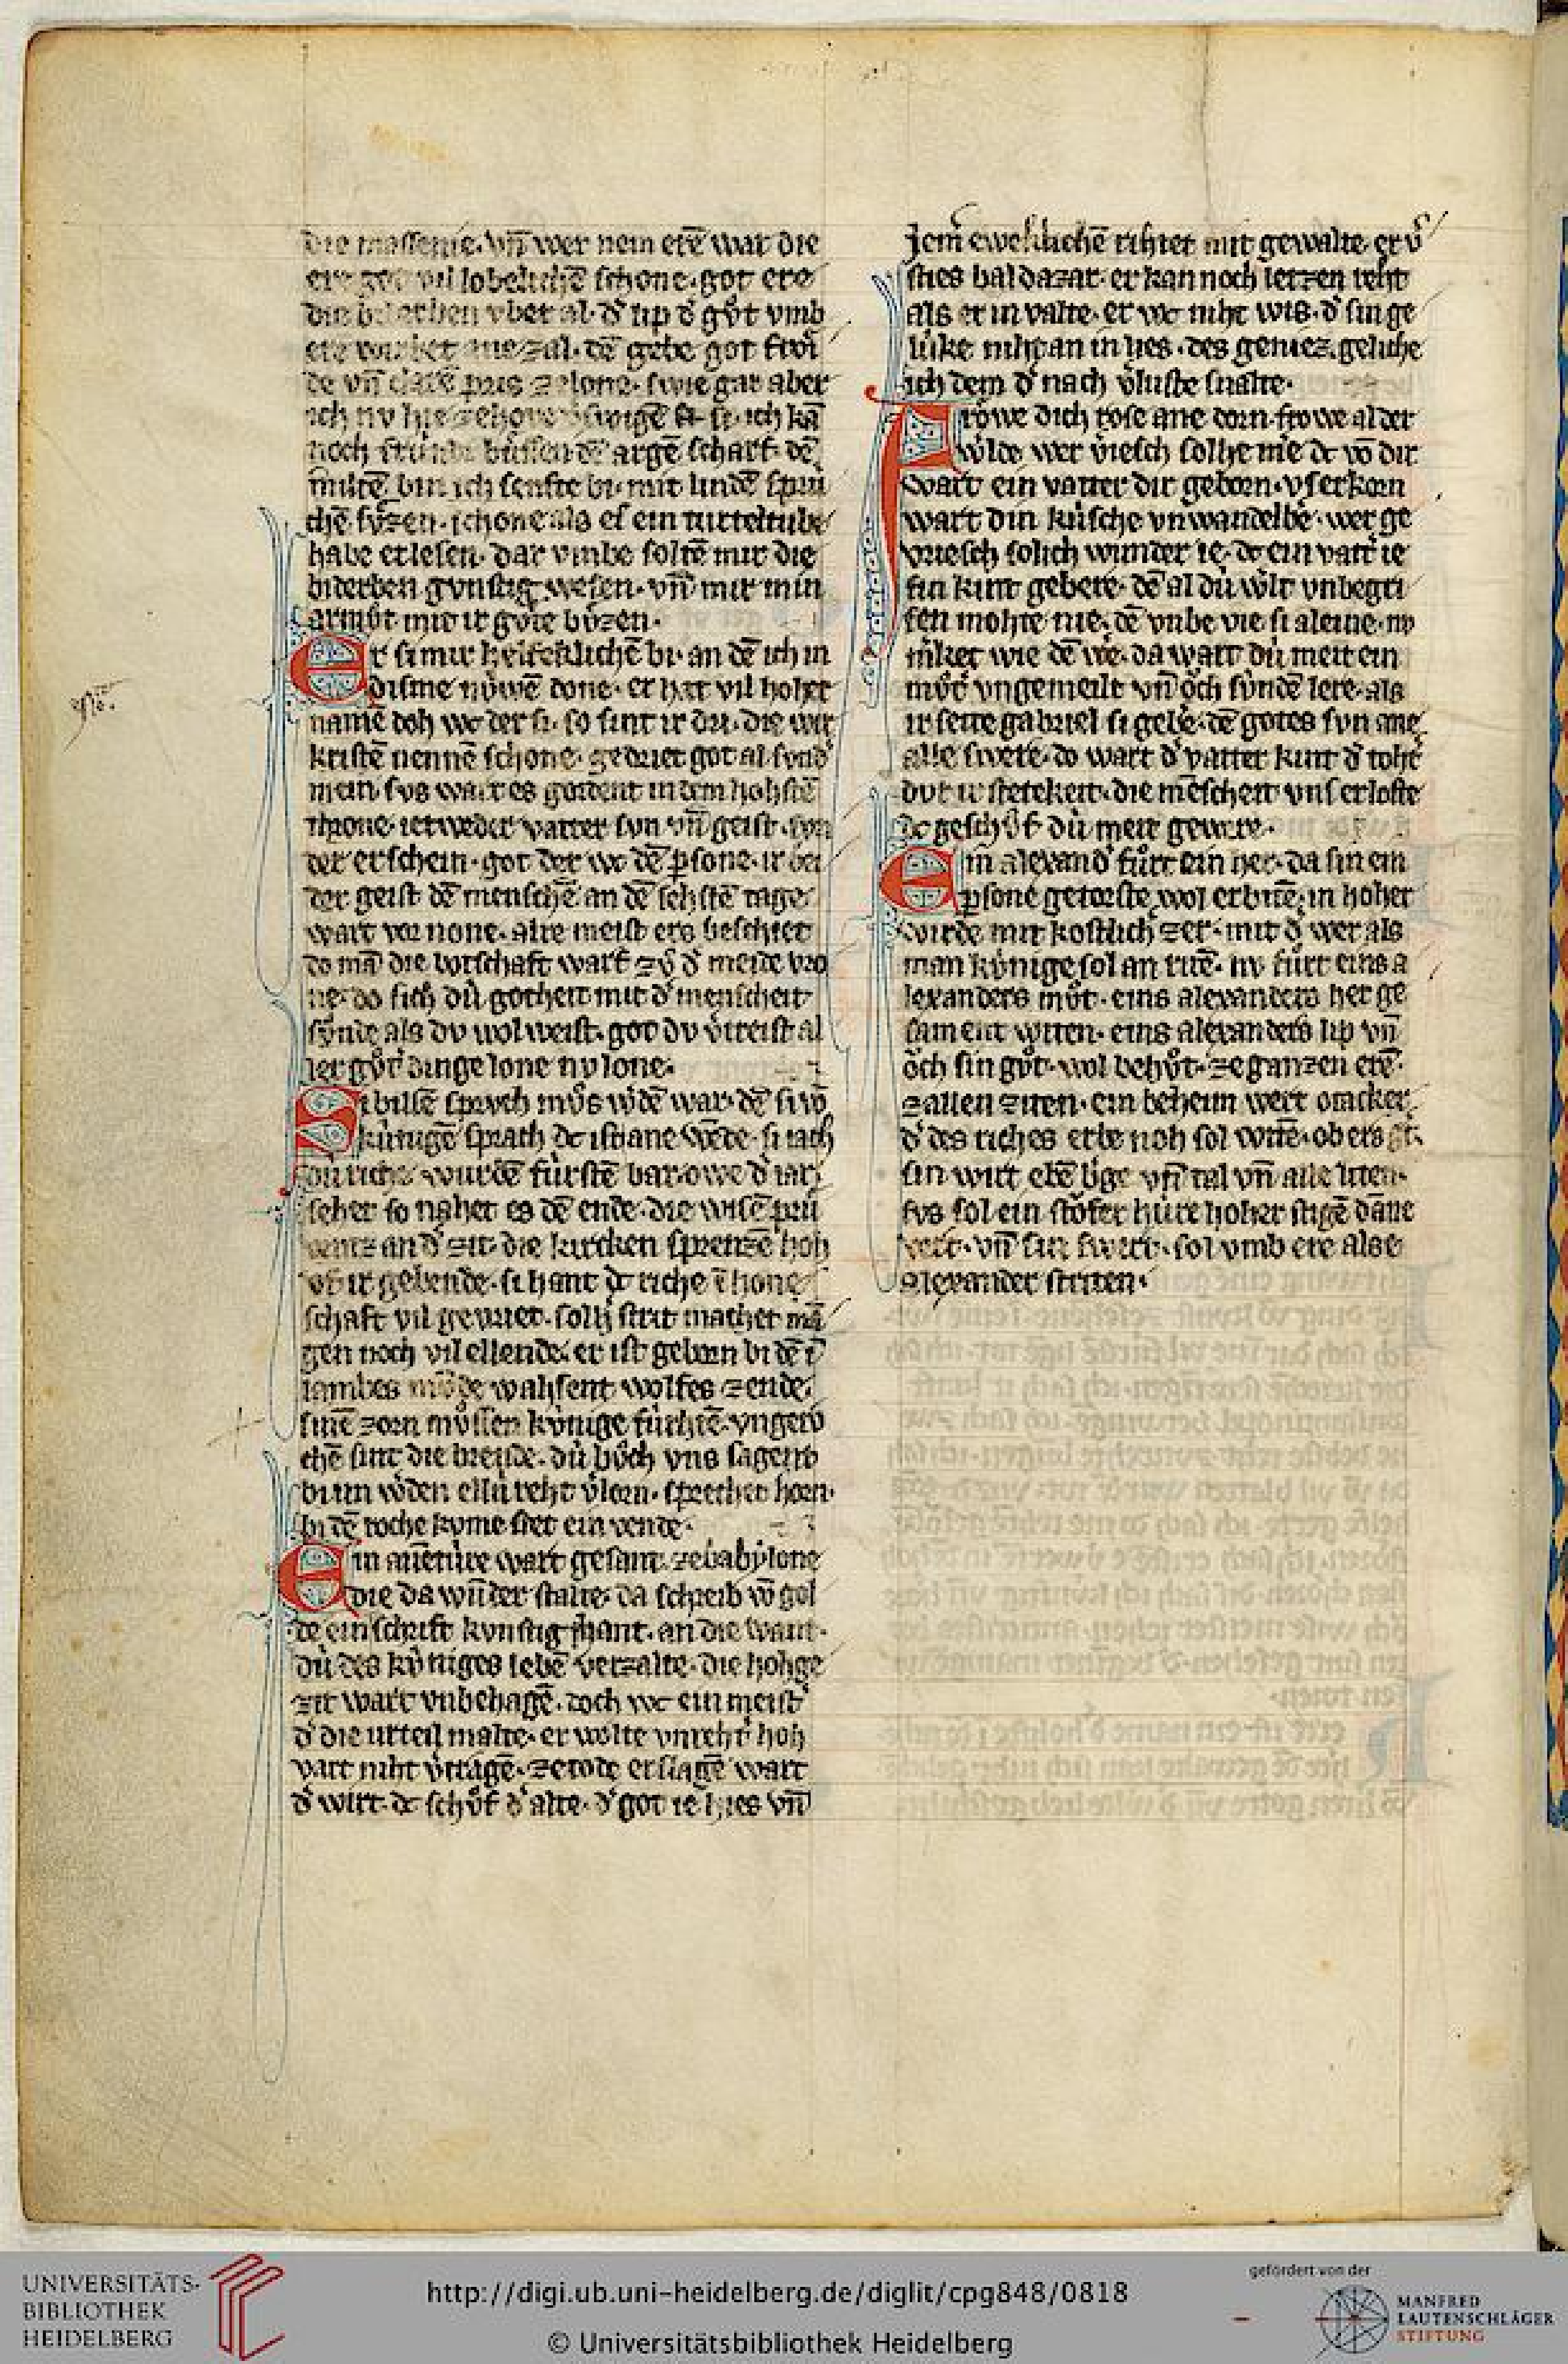 die massenie. vn̄ wer nem erē war die
ere got vil lobelichē schone. got ere
die biderben vber al. d᾿ lip d᾿ gůt vmb
ere wirbet ane zal. dē gebe got froͤi
de vn̄ pris ze lone. swie gar aber
ich nv hie si. ich kā
noch argē scharf. dē
miltē bin ich senfte bi. mit lindē sprú
chē svͤzen. schone als es ein turteltube
habe erlesen. dar vmbe soltē mir die
biderben gvnstig wesen. vn̄ mir min
armůt mit ir gvͤte bvͤzen.
Er si mir helfeklichē bi. an dē ich in
disme núwē done. er hat vil hoher
namē doh wc der si. so sint ir dri. die wir
kristē nennē schone. gedriet got al svnd᾿
mein. svs wart es geordent in dem hohstē
throne. ietweder vatter svn vn̄ geist. svn
der erschein. got der wc dē ꝑsone. ir bei
der geist dē menschē an dē sehstē tage
wart vor none. alre meist ers beschiet
do mā die botschaft warf zů d᾿ meide vro
ne. do sich dú gotheit mit d᾿ menscheit
svnde als dv wol weist. got dv v᾿treist al
ler gůt᾿ dinge lone nv lone.
Sibillē sprvch můs w᾿dē war. dē si vō
kúnigē sprach dc ist ane wēde. si iach
rich wurdē fúrstē bar. owe d᾿ iar
seher so nahet es dē ende. die wisē prú
vent an d᾿ zit. die kircken sprenzē hoh
vf ir gebende. si hant dc riche ī hone
schaft vil gevriet. solh strit machet mā
gen noch vil ellende. er ist geborn bi dē ī
lambes wahsent wolfes zende.
sinē zorn mvͤssen kvnige fúrhtē. vngero
chē sint die breude. dú bůch vns sagent
bi im w᾿den ellú reht v᾿lorn. sprechet horn.
bi dē roche kvme stet ein vende.
Ein auētúre wart gesant. ze babylone
die da wūder stalte. da schreib vō gol
de ein schrift kvnstig hant. an die want.
dú des kv́niges lebē verzalte. die hohge
zit wart vnbehagē. doch wc ein meist᾿
d᾿ die urteil malte. er wolte vnreht᾿ hoh
vart niht v᾿tragē. ze tode erslagē wart
d᾿ wirt. dc schůf d᾿ alte. d᾿ got ie hies vn̄
iem᾿ eweklichē rihtet mit gewalte. er v᾿
sties baldazar. er kan noch letzen reht
als er in valte. er wc niht wis. d᾿ sin ge
lúke niht an in lies. des geniez. geliche
ich dem d᾿ nach v᾿luste snalte.
Frowe dich rose ane dorn. frowe al der
w᾿lde wer vriesch solhe me dc vō dir
wart ein vatter dir geborn. vserkorn
wart din kúsche vnwandelbe᾿. wer ge
vriesch solich wunder ie. dc ein vatt᾿ ie
sin kint gebere. dē al dú w᾿lt vnbegri
fen mohte nie. dē vnbe vie si aleine. nv
m᾿ket wie dē we᾿. da wart dú meit ein
můt᾿ vngemeilt vn̄ oͮch súndē lere. als
ir seite gabriel si gebe᾿. dē gotes svn ane
alle swere. do wart d᾿ vatter kint d᾿ toht᾿
dvr ir stetekeit. die mēscheit vns erloste
dc geschůf dú meit gewere.
Ein alexand᾿ fůrt ein her. da sin ein
ꝑsone getorste wol erbitē. in hoher
wirde mit kostlich᾿ zer. mit d᾿ wer als
man kv́nige sol an ritē. nv fůrt eins a
lexanders můt. eins alexanders her ge
sament witen. eins alexanders lip vn̄
oͮch sin gůt. wol behůt. ze ganzen erē.
zallen ziten. ein beheim wert otacker
d᾿ des riches erbe noh sol witē. ob ers gt᾿.
sin wirt ebē b᾿ge vn̄ tal vn̄ alle liten.
svs sol ein stoͮfer húre hoher stigē dāne
vert. vn̄ sin swert. sol vmb ere alse
alexander striten.
UNIVERSITÄTS-
BIBLIOTHEK
HEIDELBERG
http://digi.ub.uni-heidelberg.de/diglit/cpg848/0818
© Universitätsbibliothek Heidelberg
gefördert von der
MANFRED
LAUTENSCHLÄGER
STIFTUNG